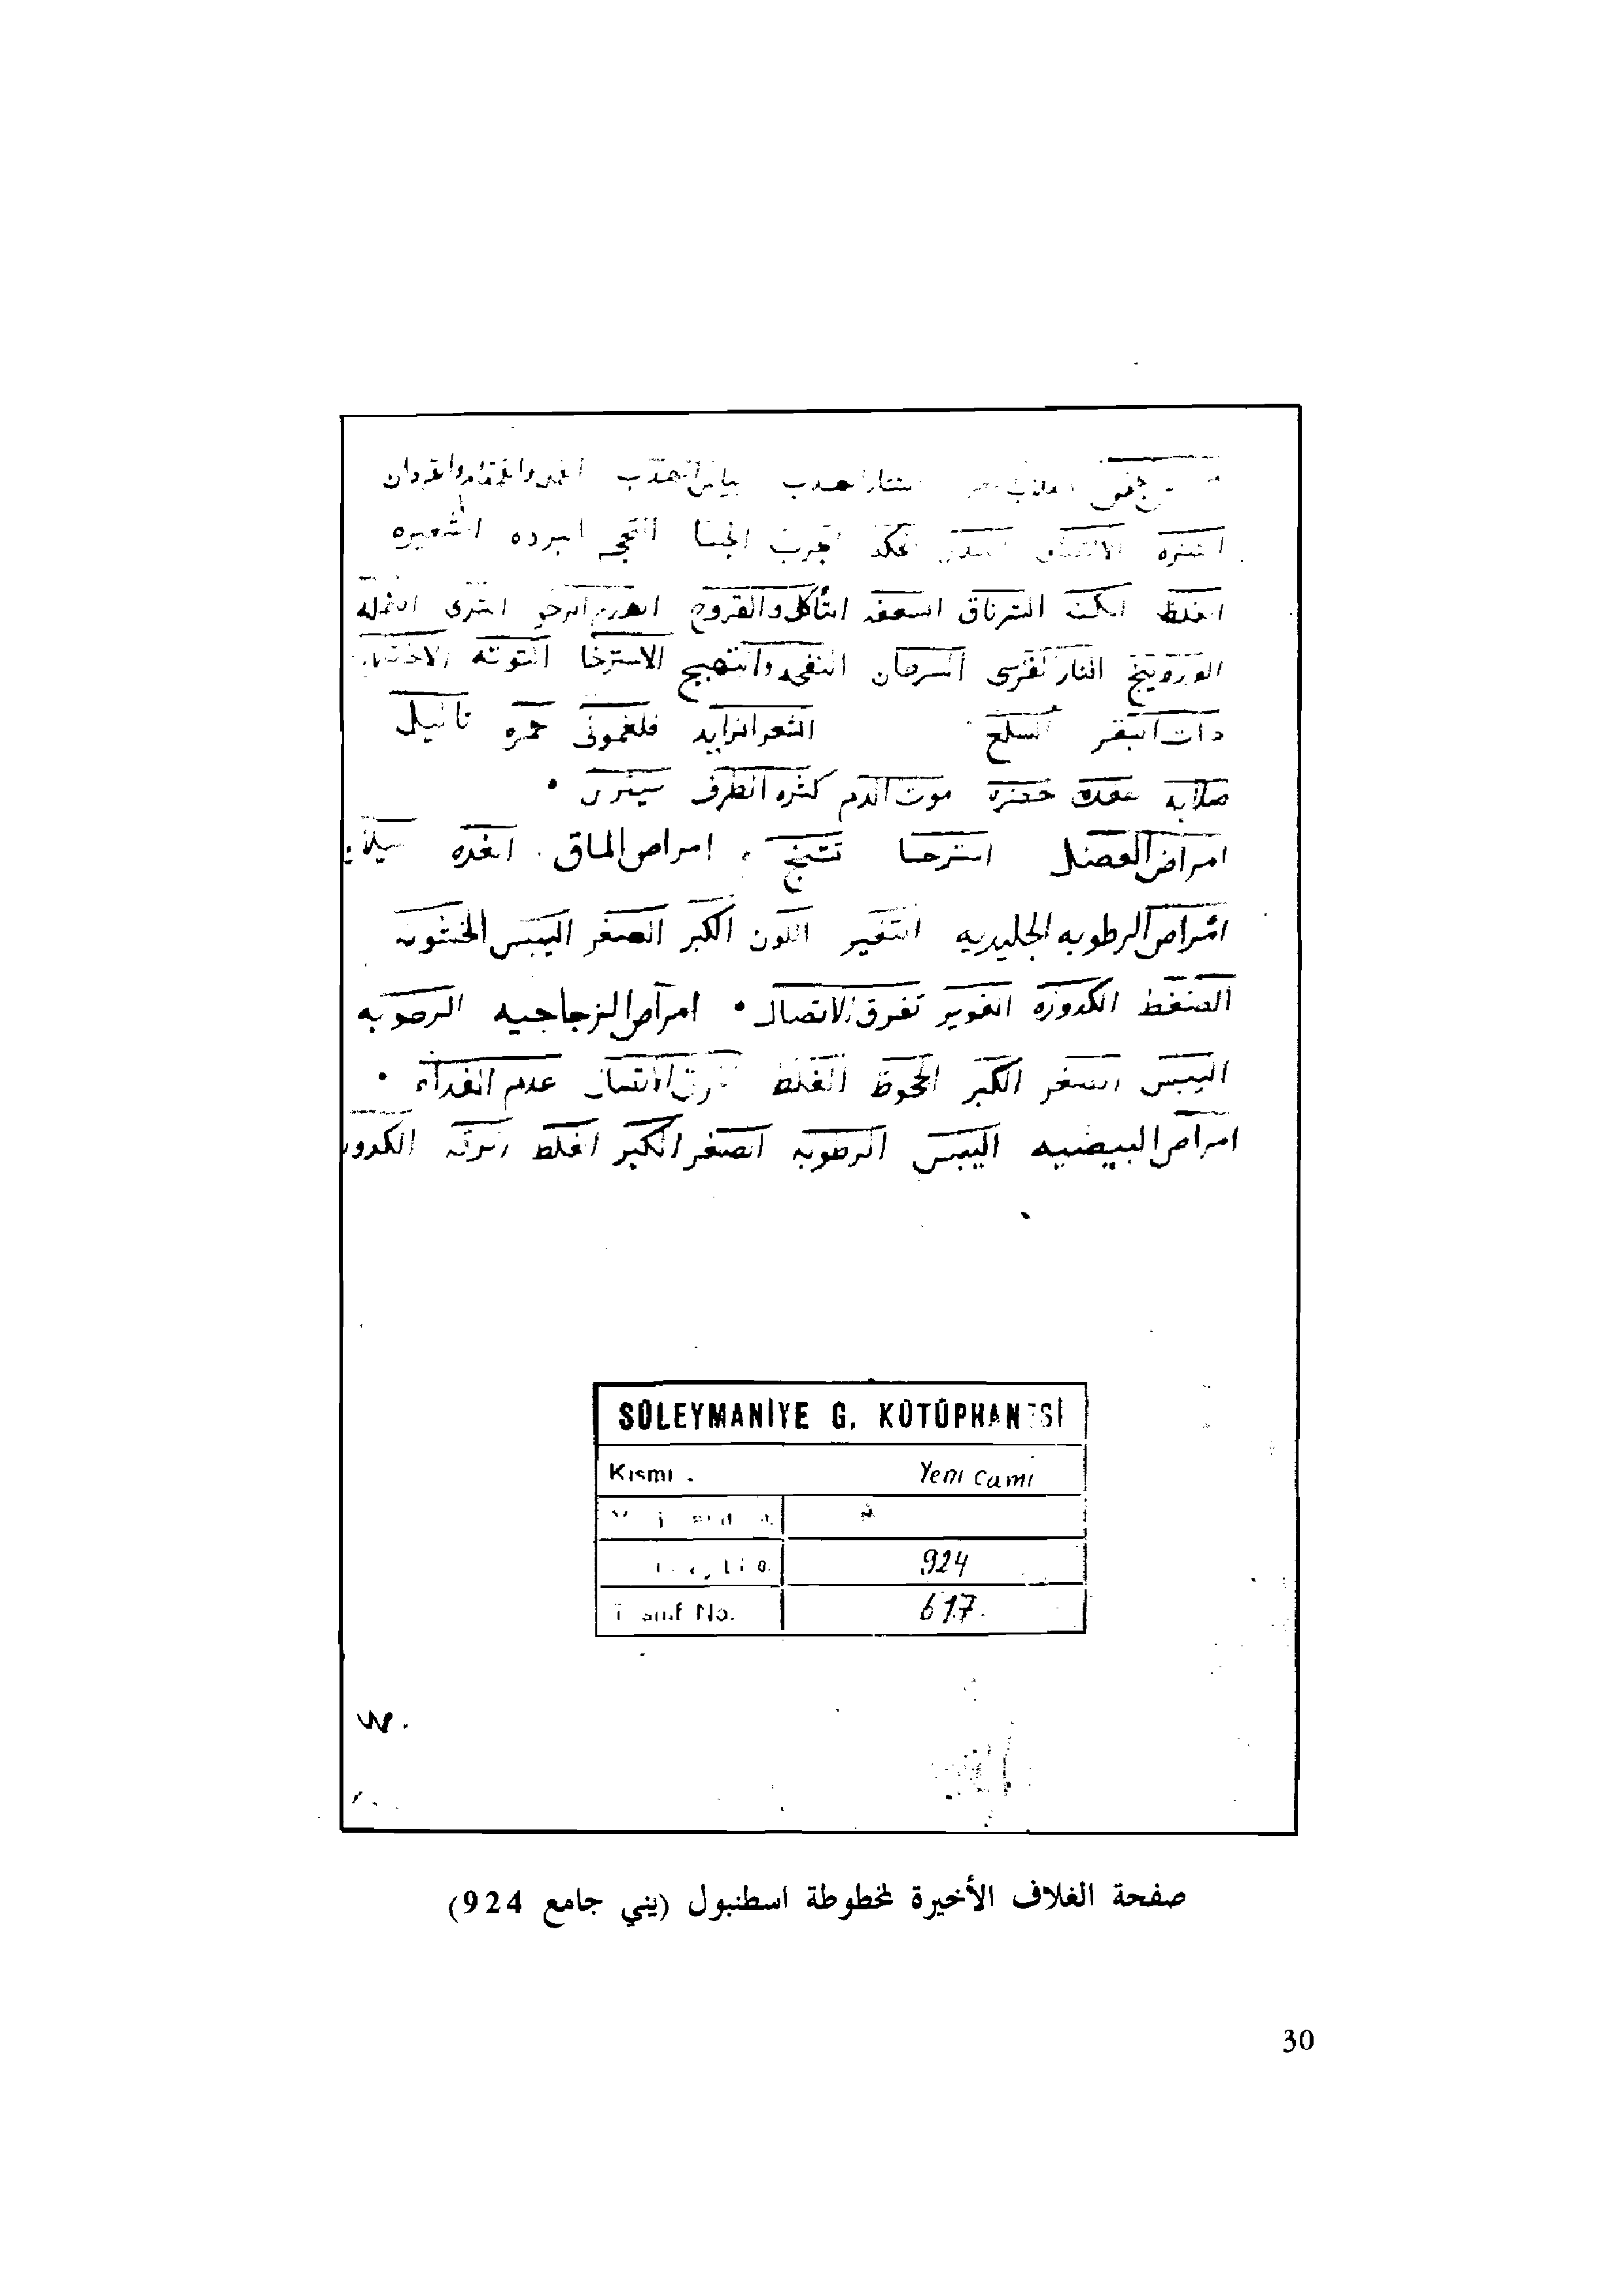 انتثار الهدب بياض الهدب القمل والقمقام والقردان
الشتره الالتصاق الحكه الجرب الجسا التحجر البرده الشعيره
الغلظ الكمنه الشرناق السعفه التأكل والقروح الورم الرخو الشرى النمله
الوردينج النار الفرسى السرطان النفخه والتهيج الاسترخا التوته
ذات البقر السلع الشعر الزايد فلغمونى حمره تاليل
صلابه عقد خضره موت الدم كثره الطرف
امراض العضل استرخا تشنج امراض الماق الغده سيلان
امراض الرطوبه الجليديه التغير اللون الكبر الصغر اليبس الخشونه
الضغط الكدوره الغوير تفرق الاتصال • امراض الزجاجيه الرطوبه
اليبس الصغر الكبر الجحوظ الغلظ تفرق الاتصال عدم الغداء •
امراض البيضيه اليبس الرطوبه الصغر الكبر الغلظ الرقه الكدور
SÜLEYMANİYE G. KÜTÜPHANESİ
Kısmı . Yeni Cami
924
Tasnif No. 617.
صفحة الغلاف الأخيرة لمخطوطة اسطنبول (يني جامع 924)
30